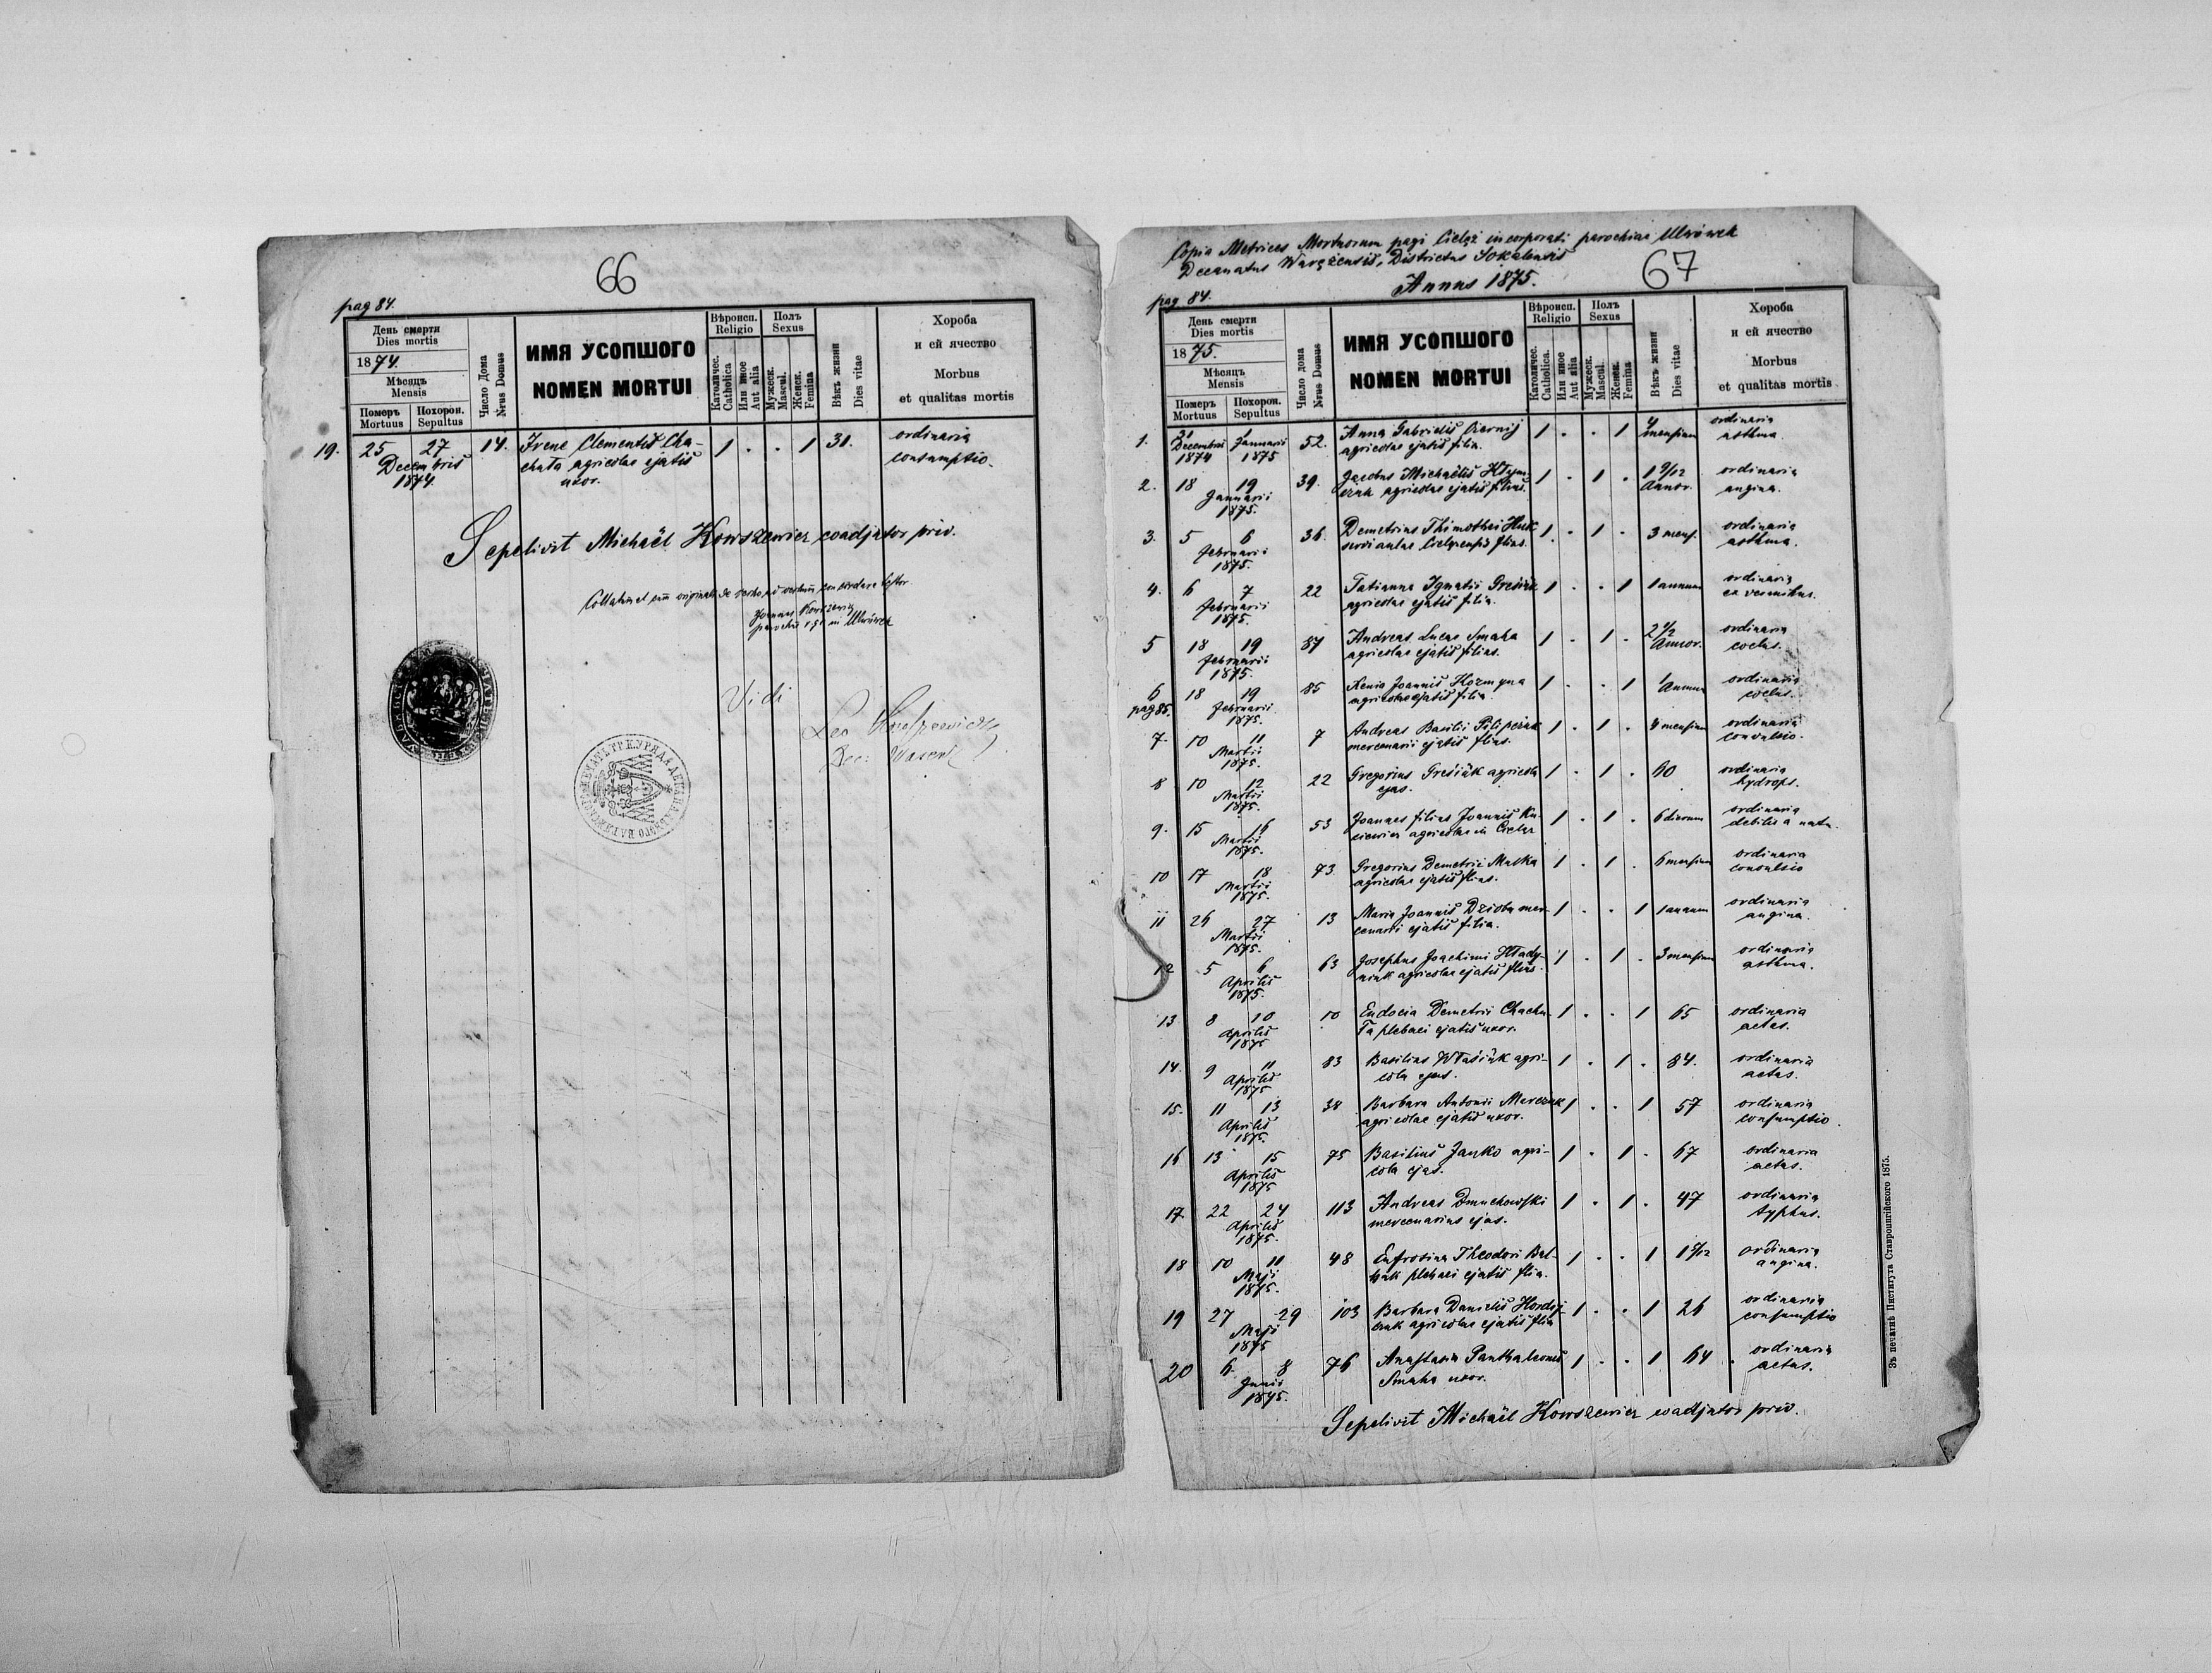 66
pag 84.
День смерти
Dies mortis
1874.
Мѣсяцъ
Mensis
Померъ
Mortuus
Похорон.
Sepultus
Число Дома
Nrus Domus
ИМЯ УСОПШОГО
NOMEN MORTUI
Вѣроисп.
Religio
Католичес.
Catholica
Или иное
Aut alia
Полъ
Sexus
Мужеск.
Mascul.
Женск.
Femina
Вѣкъ жизни
Dies vitae
Хороба
и ей ячество
Morbus
et qualitas mortis
19. 25 27 14. Irene Clementis Cha- 1 . . 1 31. ordinaria
Decembris chata agricolae ejatis consumptio.
1874. uxor.
Sepelivit Michaël Kowszewicz coadjutor priv.
Collatum et cum originali de verbo ad verbum concordare testor.
Joannes
parochus in Uhrinek
Vidi
Leo
Dec:
67
Copia Metrices Mortuorum pagi Cieląż incorporati parochiae Uhrinek
Decanatus Waręzensis, Districtus Sokalensis
Annus 1875.
pag. 84.
День смерти
Dies mortis
1875.
Мѣсяцъ
Mensis
Померъ
Mortuus
Похорон.
Sepultus
Число дома
Nrus Domus
ИМЯ УСОПШОГО
NOMEN MORTUI
Вѣроисп.
Religio
Католичес.
Catholica.
Или иное
Aut alia
Полъ
Sexus
Мужеск.
Mascul.
Женск.
Femina
Вѣкъ жизни
Dies vitae
Хороба
и ей ячество
Morbus
et qualitas mortis
1. 31 1 52. Anna Gabrielis Czernij 1 . . 1 4 ordinaria
Decembri Januarii agricolae ejatis filia. mensium asthma.
1874 1875
2. 18 19 39. Jacobus Michaëlis Hłym- 1 . 1 . 1 9/12 ordinaria
Januarii czak agricolae ejatis filius. Annor. angina.
1875.
3. 5 6 36. Demetrius Thimothei Huk 1 . 1 . 3 mens. ordinaria
Februarii filius. asthma.
1875.
4. 6 7 22 Tatianna Ignatii Greśiuk 1 . . 1 1 annum ordinaria
Februarii agricolae ejatis filia. ex vermibus.
1875.
5 18 19 87 Andreas Lucae Smaha 1 . 1 . 2 1/2 ordinaria
Februarii agricolae ejatis filius. Annor.
1875.
6 18 19 85 Xenia Joannis 1 . . 1 1 Annum ordinaria
pag 85. Februarii agricolae ejatis filia.
1875.
7. 10 11 7 Andreas Basilii Pilipczuk 1 . 1 . 4 mensium ordinaria
Martii mercenarii ejatis filius. convulsio.
1875.
8 10 12 22 Gregorius Greśiuk agricola 1 . 1 . 60 ordinaria
Martii ejas. hydrops.
1875.
9. 15 16 53 Joannes filius Joannis Ku- 1 . 1 . 6 dierum ordinaria
Martii agricolae in debilis a natu.
1875.
10 17 18 73 Gregorius Demetrii Maśka 1 . 1 . 6 mensium ordinaria
Martii agricolae ejatis filius. convulsio
1875.
11 26 27 13 Maria Joannis Dzioba mer- 1 . . 1 1 annum ordinaria
Martii cenarii ejatis filia. angina.
1875.
12 5 6 63 Josephus Joachimi Hłady- 1 . 1 . 3 mensium ordinaria
Aprilis niuk agricolae ejatis filius. asthma.
1875.
13 8 10 10 Eudocia Demetrii Chacha- 1 . . 1 65 ordinaria
Aprilis ta plebaei ejatis uxor. aetas.
1875
14. 9 11 83 Basilius Własiuk agri- 1 . 1 . 84. ordinaria
Aprilis cola ejas. aetas.
1875
15. 11 13 38 Barbara Antonii Marczuk 1 . . 1 57 ordinaria
Aprilis agricolae ejatis uxor. consumptio.
1875.
16 13 15 75 Basilius Janko agri- 1 . 1 . 67 ordinaria
Aprilis cola ejas. aetas.
1875
17. 22 24 113 Andreas Dmuchowski 1 . 1 . 47 ordinaria
Aprilis mercenarius ejas. typhus.
1875.
18 10 11 48 Eufrosina Theodori 1 . . 1 ordinaria
Maji plebaei ejatis filia. angina.
1875.
19 27 29 103 Barbara Danielis Hordij- 1 . . 1 26 ordinaria
Maji czuk agricolae ejatis filia consumptio
1875
20 6. 8 76 Anastasia Panthaleonis 1 . . 1 64 ordinaria
Junii Smaha uxor. aetas.
1875.
Sepelivit Michaël Kowszewicz coadjutor priv.
Зъ печатнѣ Института Ставропигійского 1875.